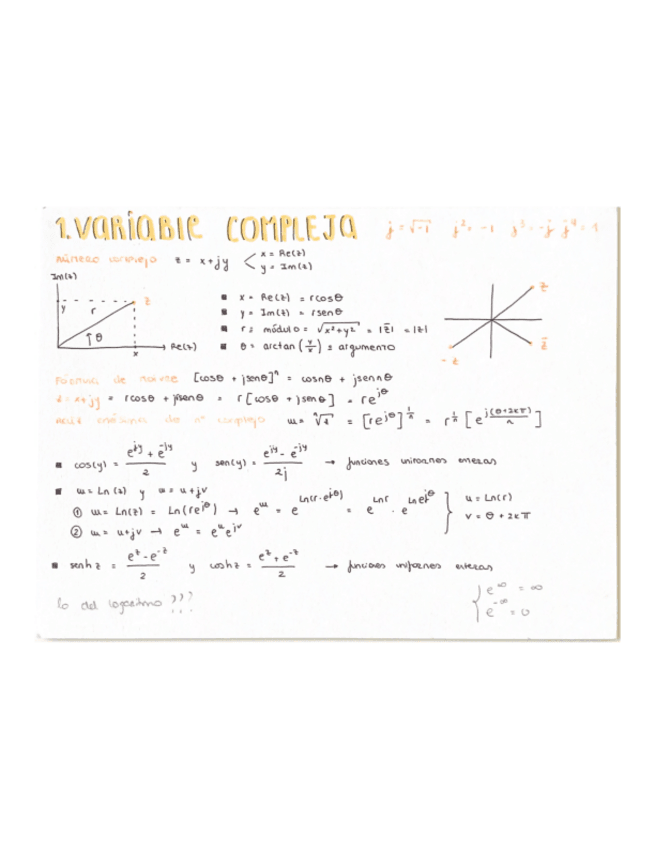 1. VARIABLE COMPLEJA j = √-1 j² = -1 j³ = -j j⁴ = 1
número complejo z = x + jy < x = Re(z)
y = Im(z)
Im(z)
y r z
θ
x Re(z)
▪ x = Re(z) = r cosθ
▪ y = Im(z) = r senθ
▪ r = módulo = √x²+y² = |z̅| = |z|
▪ θ = arctan(y/x) = argumento
z
-z z̅
Fórmula de moivre [cosθ + jsenθ]ⁿ = cosnθ + jsennθ
z = x+jy = rcosθ + jrsenθ = r[cosθ + jsenθ] = re^jθ
raíz enésima de nº complejo w = ⁿ√z = [re^jθ]^1/n = r^1/n [e^j(θ+2kπ)/n]
▪ cos(y) = (e^jy + e^-jy)/2 y sen(y) = (e^jy - e^-jy)/2j → funciones uniformes enteras
▪ w = Ln(z) y w = u + jv
① w = Ln(z) = Ln(re^jθ) → e^w = e^Ln(r·e^jθ) = e^Lnr · e^Lne^jθ
② w = u+jv → e^w = e^u e^jv
} u = Ln(r)
v = θ + 2kπ
▪ senhz = (e^z - e^-z)/2 y coshz = (e^z + e^-z)/2 → funciones uniformes enteras
lo del logaritmo ???
{ e^∞ = ∞
e^-∞ = 0